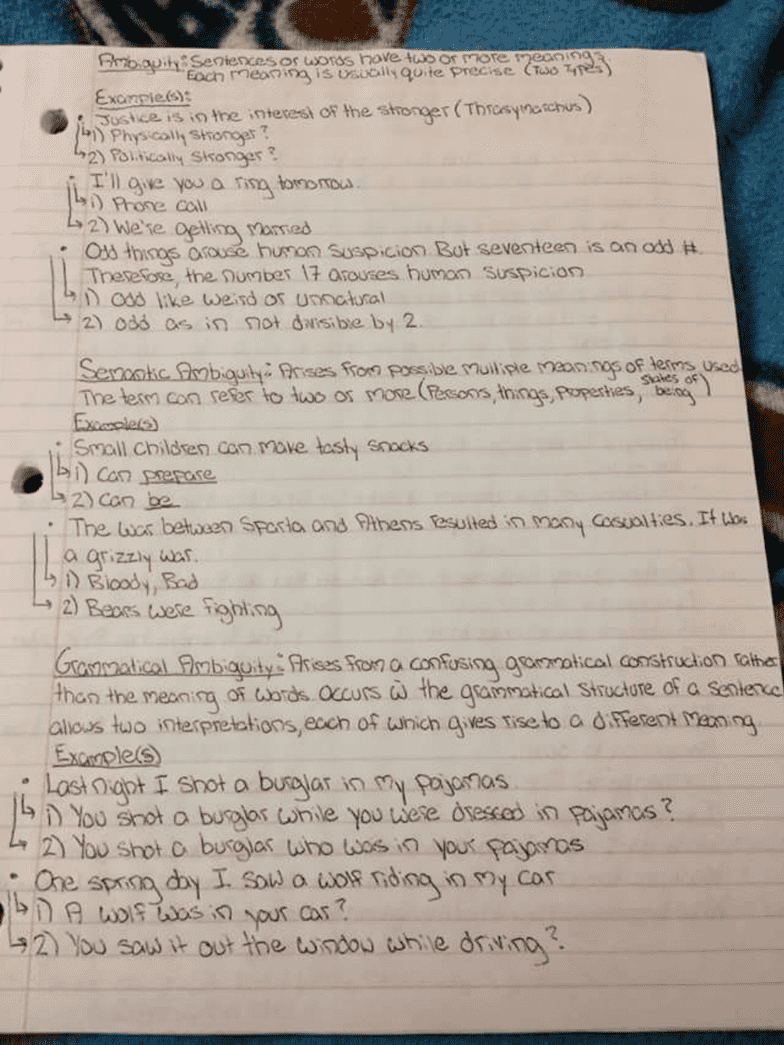 Ambiguity: Sentences or words have two or more meanings.
Each meaning is usually quite precise (Two Types)
Example(s):
• Justice is in the interest of the stronger (Thrasymachus)
↳ 1) Physically stronger?
↳ 2) Politically stronger?
• I'll give you a ring tomorrow.
↳ 1) Phone call
↳ 2) We're getting married
• Odd things arouse human suspicion. But seventeen is an odd #.
Therefore, the number 17 arouses human suspicion
↳ 1) odd like weird or unnatural
↳ 2) odd as in not divisible by 2.
Semantic Ambiguity: Arises from possible multiple meanings of terms used
The term can refer to two or more (Persons, things, Properties, states of being)
Example(s)
• Small children can make tasty snacks
↳ 1) Can prepare
↳ 2) Can be
• The war between Sparta and Athens resulted in many casualties. It was
a grizzly war.
↳ 1) Bloody, Bad
↳ 2) Bears were fighting
Grammatical Ambiguity: Arises from a confusing grammatical construction rather
than the meaning of words. occurs w the grammatical structure of a sentence
allows two interpretations, each of which gives rise to a different meaning
Example(s)
• Last night I shot a burglar in my pajamas.
↳ 1) You shot a burglar while you were dressed in pajamas?
↳ 2) You shot a burglar who was in your pajamas
• One spring day I saw a wolf riding in my car
↳ 1) A wolf was in your car?
↳ 2) You saw it out the window while driving?